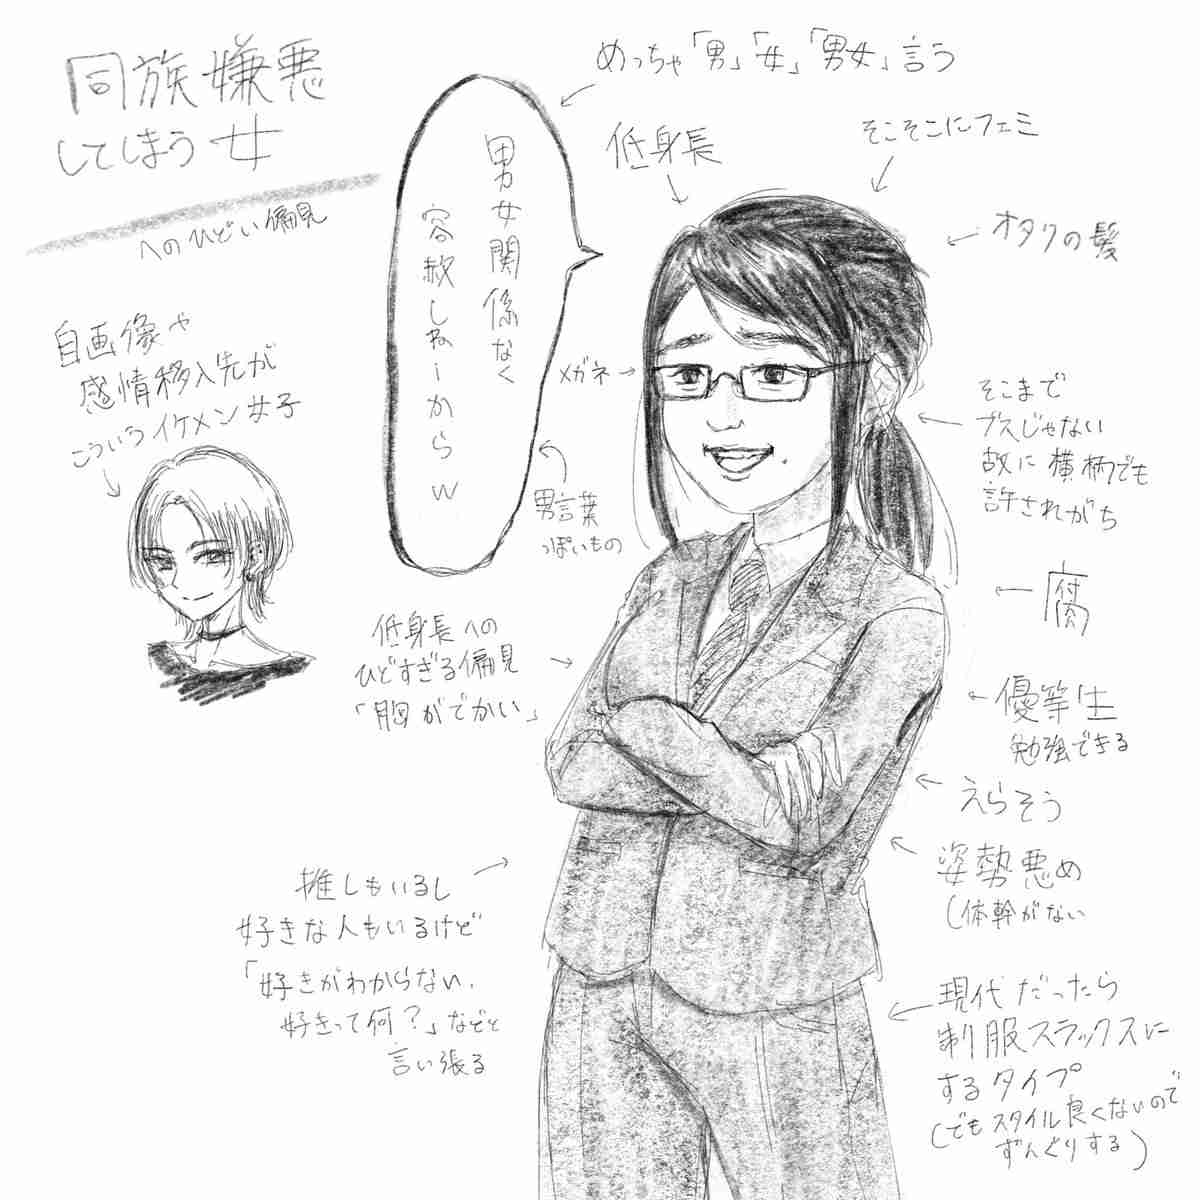 同族嫌悪
してしまう女
へのひどい偏見
めっちゃ「男」「女」「男女」言う
低身長
そこそこにフェミ
オタクの髪
男女関係なく
容赦しねーからw
メガネ→
男言葉
っぽいもの
自画像や
感情移入先が
こういうイケメン女子
そこまで
ブスじゃない
故に横柄でも
許されがち
腐
低身長への
ひどすぎる偏見
「胸がでかい」
優等生
勉強できる
えらそう
姿勢悪め
(体幹がない
推しもいるし
好きな人もいるけど
「好きがわからない、
好きって何?」などと
言い張る
現代だったら
制服スラックスに
するタイプ
(でもスタイル良くないので
ずんぐりする)